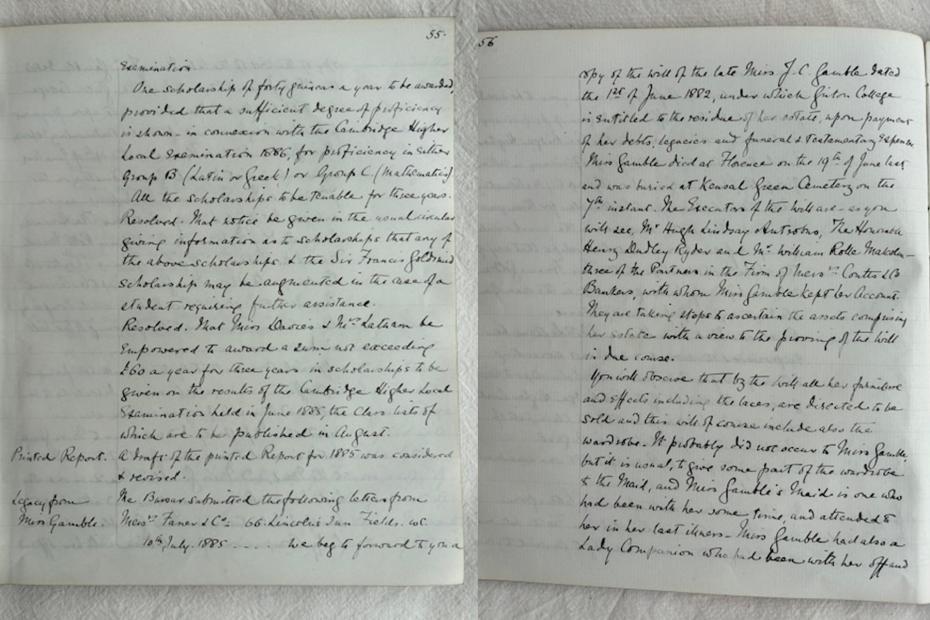 55.
Examination.
One scholarship of forty guineas a year to be awarded,
provided that a sufficient degree of proficiency
is shown in connexion with the Cambridge Higher
Local Examination 1886, for proficiency in either
Group B (Latin or Greek) or Group C (Mathematics)
All the scholarships to be tenable for three years.
Resolved. That notice be given in the usual circular
giving information as to scholarships that any of
the above scholarships & the Sir Francis Goldsmid
scholarship may be augmented in the case of a
student requiring further assistance.
Resolved. That Miss Davies & Mrs Latham be
empowered to award a sum not exceeding
£60 a year for three years in scholarships to be
given on the results of the Cambridge Higher Local
Examination held in June 1885, the Class lists of
which are to be published in August.
Printed Report. A draft of the printed Report for 1885 was considered
& revised.
Legacy from The Bursar submitted the following letter from
Miss Gamble. Messrs Farrer & Co. 66. Lincoln's Inn Fields. W.C.
10th July. 1885 .... We beg to forward to you a
56
copy of the will of the late Miss J. C. Gamble dated
the 1st of June 1882, under which Girton College
is entitled to the residue of her estate, upon payment
of her debts, legacies and funeral & testamentary expenses
Miss Gamble died at Florence on the 19th of June last
and was buried at Kensal Green Cemetery on the
7th instant. The Executors of the Will are as you
will see, Mr Hugh Lindsay Antrobus, The Honorable
Henry Dudley Ryder and Mr William Rolle Malcolm—
three of the Partners in the Firm of Messrs Coutts & Co
Bankers, with whom Miss Gamble kept her Account.
They are taking steps to ascertain the assets comprising
her estate with a view to the proving of the Will
in due course.
You will observe that by the Will all her furniture
and effects including the laces, are directed to be
sold and this will of course include also the
wardrobe. It probably did not occur to Miss Gamble,
but it is usual, to give some part of the wardrobe
to the Maid, and Miss Gamble's Maid is one who
had been with her some time, and attended to
her in her last illness— Miss Gamble had also a
Lady Companion who had been with her off and